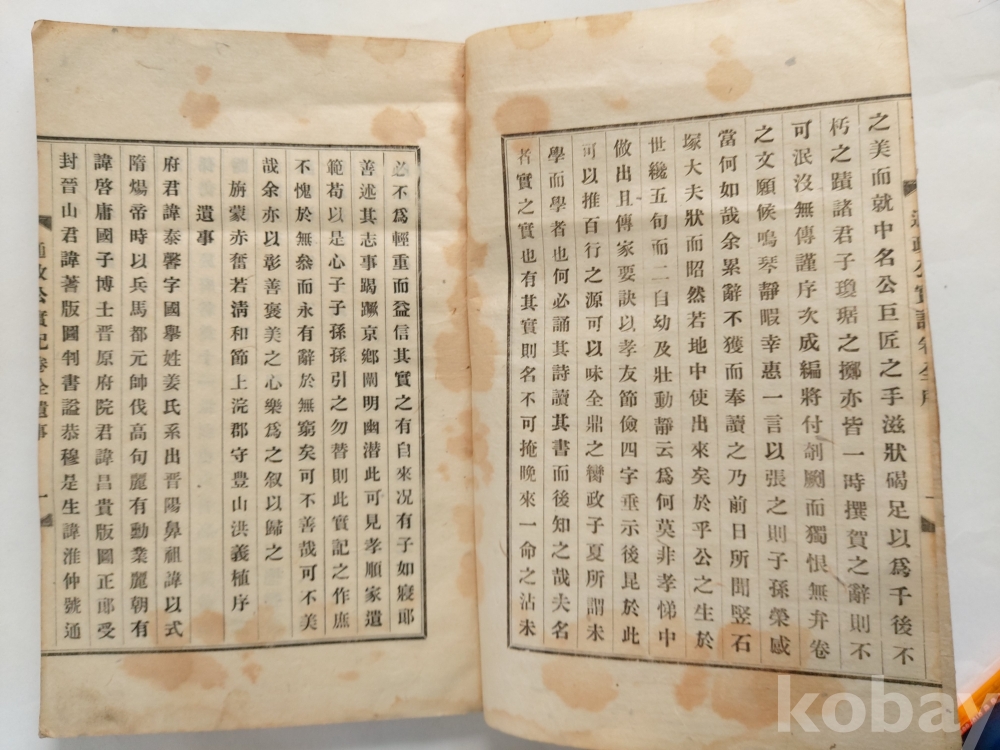 之美而就中名公巨匠之手滋狀碣足以爲千後不
朽之蹟諸君子瓊琚之擲亦皆一時撰賀之辭則不
可泯沒無傳謹序次成編將付剞劂而獨恨無弁卷
之文願候鳴琴靜暇幸惠一言以張之則子孫榮感
當何如哉余累辭不獲而奉讀之乃前日所聞竪石
塚大夫狀而昭然若地中使出來矣於乎公之生於
世纔五旬而二自幼及壯動靜云爲何莫非孝悌中
做出且傳家要訣以孝友節儉四字垂示後昆於此
可以推百行之源可以味全鼎之臠政子夏所謂未
學而學者也何必誦其詩讀其書而後知之哉夫名
者實之實也有其實則名不可掩晩來一命之沾未
必不爲輕重而益信其實之有自来况有子如寢郎
善述其志事蹋蹶京鄉闡明幽潜此可見孝順家遺
範苟以是心子子孫孫引之勿替則此實記之作庶
不愧於無忝而永有辭於無窮矣可不善哉可不美
哉余亦以彰善褒美之心樂爲之叙以歸之
旃蒙赤奮若淸和節上浣郡守豊山洪義植序
遺事
府君諱泰馨字國擧姓姜氏系出晋陽鼻祖諱以式
隋煬帝時以兵馬都元帥伐高句麗有勳業麗朝有
諱啓庸國子博士晋原府院君諱昌貴版圖正郎受
封晉山君諱著版圖判書謚恭穆是生諱淮仲號通
通政公實記卷全遺事 一
kobay